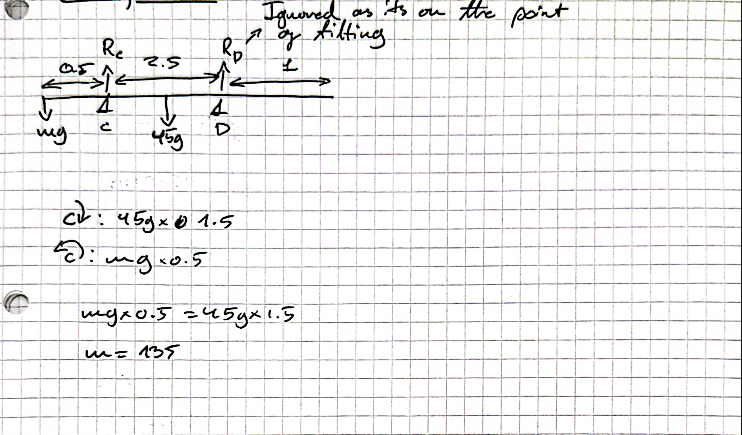 Ignored as its on the point
of tilting
Rc
RD
0.5
2.5
1
mg
C
45g
D
C: 45g×0 1.5
C: mg×0.5
mg×0.5 = 45g×1.5
m = 135